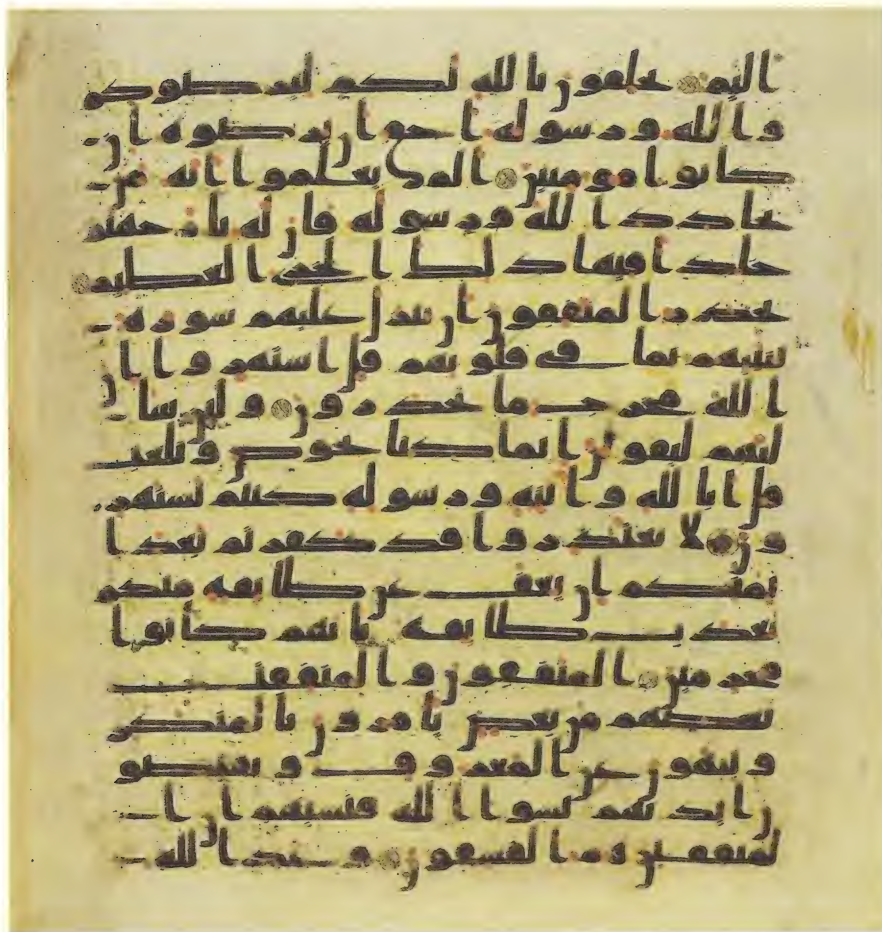 اليم يحلفون بالله لكم ليرضوكم
والله ورسوله احق ان يرضوه ان
كانوا مومنين الم يعلموا انه من
يحادد الله ورسوله فان له نار جهنم
خلدا فيها ذلك الخزي العظيم
يحذر المنفقون ان تنزل عليهم سورة
تنبيهم بما في قلوبهم قل استهزوا ان
الله مخرج ما تحذرون ولين سا
لتهم ليقولن انما كنا نخوض ونلعب
قل ابالله وايته ورسوله كنتم تستهز
ون لا تعتذروا قد كفرتم بعد ا
يمنكم ان يعف عن طايفة منكم
تعذب طايفة بانهم كانوا
مجرمين المنفقون والمنفقت
بعضهم من بعض يامرون بالمنكر
وينهون عن المعروف ويقبضو
ن ايديهم نسوا الله فنسيهم ان ا
لمنفقين هم الفسقون وعد الله